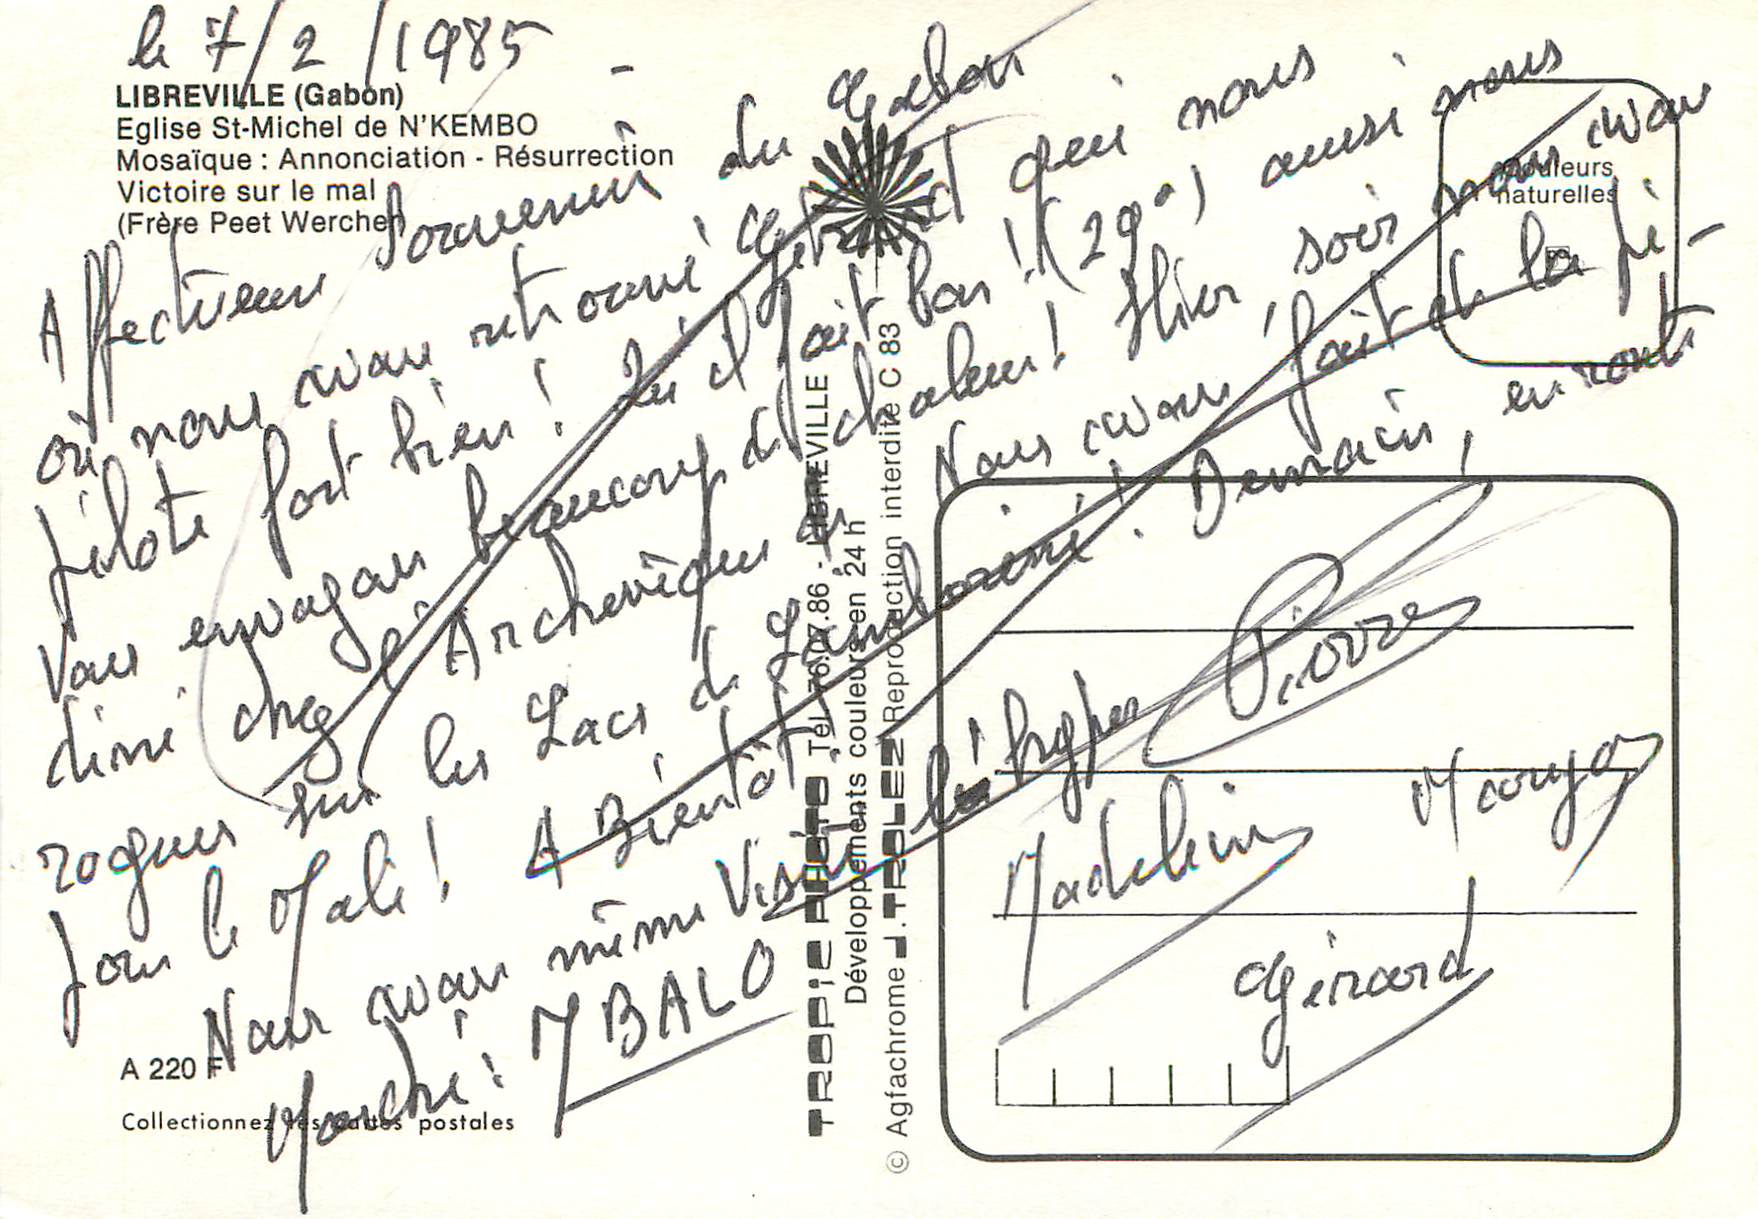 le 7/2/1985
LIBREVILLE (Gabon)
Eglise St-Michel de N'KEMBO
Mosaïque : Annonciation - Résurrection
Victoire sur le mal
(Frère Peet Wercher)
Couleurs
naturelles
Affectueux Souvenir du Gabon
où nous avons retrouvé Gérard qui nous
pilote fort bien ! Ici il fait bon ! (29°) aussi nous
vous envoyons beaucoup de chaleur ! Hier soir nous avons
diné chez l'Archevêque. Nous avons fait de la pi-
rogue sur les Lacs de Lambaréné ! Demain, en route
pour le Mali ! A Bientôt !
Nous avons même Visité
Marché : MBALO
Pierre
Madeleine Mouyon
Gérard
TROPIC PHOTO Tél. 76.07.86 - LIBREVILLE
Développements couleurs en 24 h
© Agfachrome J.TROLEZ Reproduction interdite C 83
A 220 F
Collectionnez les cartes postales